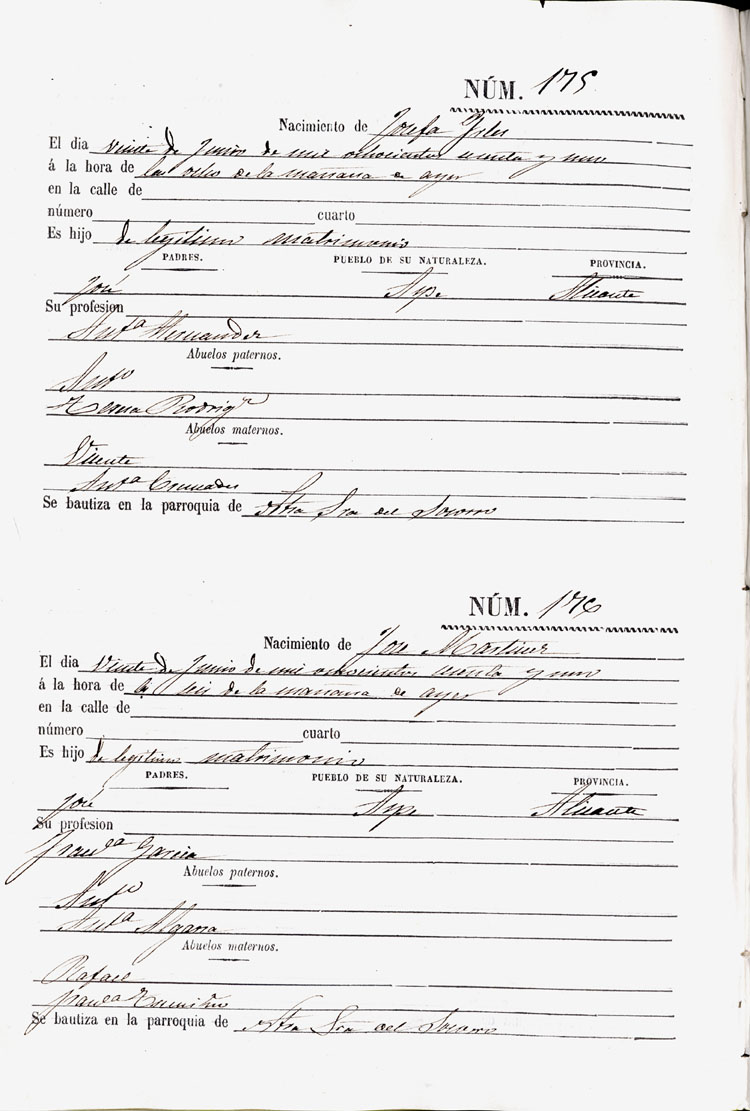 NÚM. 175
Nacimiento de Josefa
El dia veinte de Junio de mil ochocientos y uno
á la hora de las ocho de la mañana de ayer
en la calle de
número cuarto
Es hijo de legitimo matrimonio
PADRES. PUEBLO DE SU NATURALEZA. PROVINCIA.
José Aspe Alicante
Su profesion
Antª Hernandez
Abuelos paternos.
Antº
Rodrigz
Abuelos maternos.
Vicente
Antª
Se bautiza en la parroquia de Ntra Sra del Socorro
NÚM. 176
Nacimiento de Jose Martinez
El dia veinte de Junio de mil ochocientos y uno
á la hora de las seis de la mañana de ayer
en la calle de
número cuarto
Es hijo de legitimo matrimonio
PADRES. PUEBLO DE SU NATURALEZA. PROVINCIA.
José Aspe Alicante
Su profesion
Francª Garcia
Abuelos paternos.
Antº
Antª Algarra
Abuelos maternos.
Rafael
Francª
Se bautiza en la parroquia de Ntra Sra del Socorro